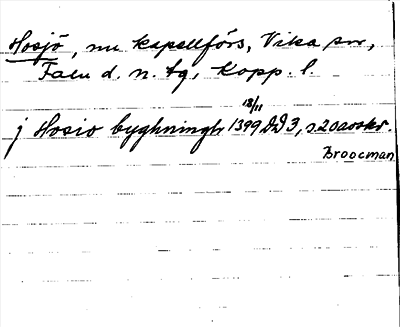 Hosjö, nu kapellförs, Vika sn,
Falu d. n. tg, Kopp. l.
18/11
j Hosio byghningh 1399 DD 3, s. 20 a avskr.
Broocman